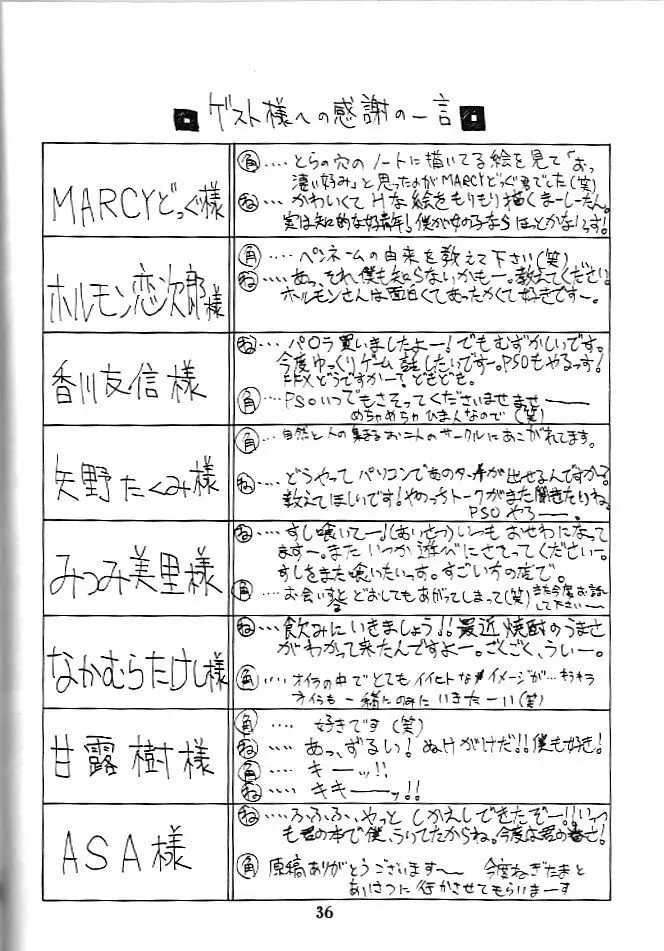 ゲスト様への感謝の一言
MARCYどっぐ様
角････とらの穴のノートに描いてる絵を見て「おっ
凄い好み」と思ったのがMARCYどっぐ君でした(笑)
ね･･･かわいくてHな絵をもりもり描くまーしーたん。
実は知的な好青年!僕が女の子ならほっとかないっす!
ホルモン恋次郎様
角････ペンネームの由来を教えて下さい(笑)
ね･･･あっ、それ僕も知らないかもー。教えてください。
ホルモンさんは面白くてあったかくて好きですー。
香川友信様
ね･･･パロラ買いましたよー!でもむずかしいです。
今度ゆっくりゲーム話したいですー。PSOもやるっす!
FFXどうですかー?どもども。
角･･･PSOいつでもさそってくださいませませーー
めちゃめちゃひまんなので(笑)
矢野たくみ様
角･･･自然と人の集まるお二人のサークルにあこがれてます。
ね･･･どうやってパソコンであのタッチが出せるんですか?
教えてほしいです!やのっちトークがまた聞きたいね。
PSOやろーー。
みつみ美里様
ね･･･すし喰いてー!(あいさつ)いつもおせわになって
ますー。またいつか遊べにさせてってくださいー。
すしをまた喰いたいっす。すごい方の店で。
角････お会いすると どおしてもあがってしまって(笑)また今度お話
して下さい～
なかむらたけし様
ね･･･飲みにいきましょう!!最近焼酎のうまさ
がわかって来たんですよー。ごくごく、うぃー。
角････オイラの中でとてもイイヒトなイメージが…キラキラ
オイラも一緒にのみにいきたーい(笑)
甘露樹様
角････好きです(笑)
ね････あっ、ずるい!ぬけがけだ!!僕も好き!
角････キーッ!!
ね････キキーーッ!!
ASA様
ね･･･ふふふ、やっとしかえしできたぞー!!いっつ
も君の本で僕、ういてたからね。今度は君の番さ!
角 原稿ありがとうございます～ 今度ねぎたまと
あいさつに行かさせてもらいまーす
36